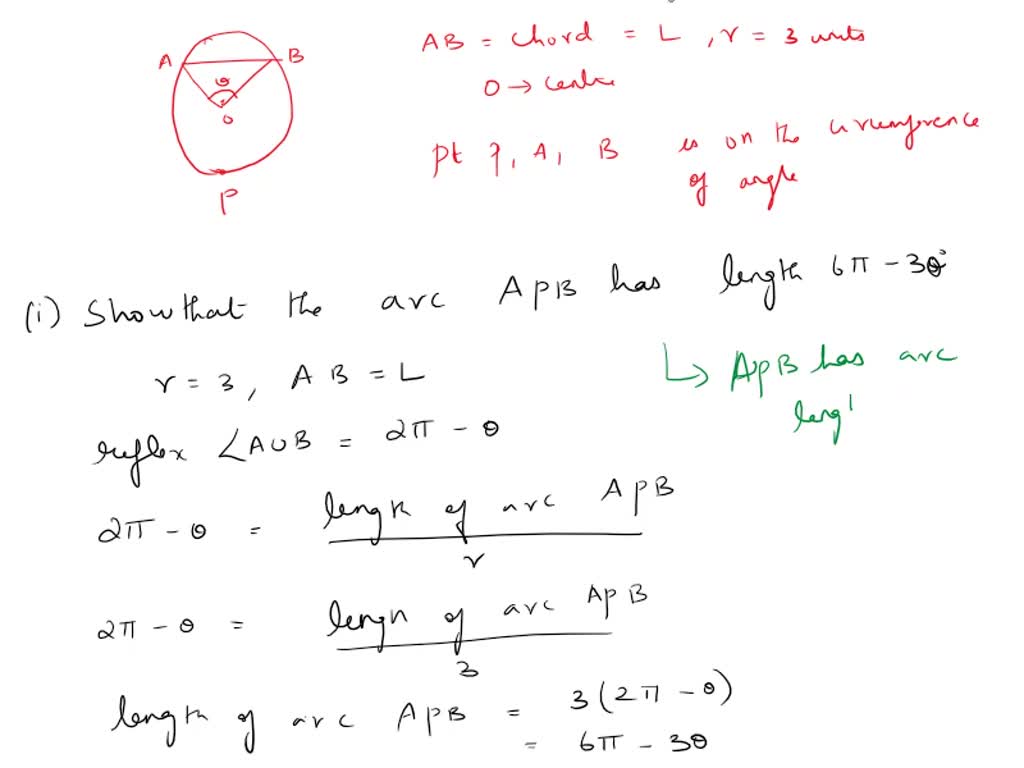 A B
θ
O
P
AB = chord = L , r = 3 units
O → centre
pt P, A, B is on the circumference
of angle
(i) Show that the arc APB has length 6π - 3θ
r = 3, AB = L
↳ APB has arc
leng
reflex ∠AOB = 2π - θ
2π - θ = length of arc APB
r
2π - θ = lengh of arc APB
3
length of arc APB = 3(2π - θ)
= 6π - 3θ